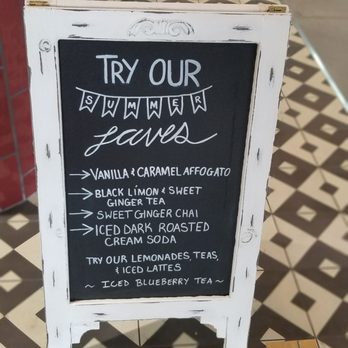 TRY OUR
SUMMER
faves
→ VANILLA & CARAMEL AFFOGATO
→ BLACK LIMON & SWEET
GINGER TEA
→ SWEET GINGER CHAI
→ ICED DARK ROASTED
CREAM SODA
TRY OUR LEMONADES, TEAS,
& ICED LATTES
~ ICED BLUEBERRY TEA ~